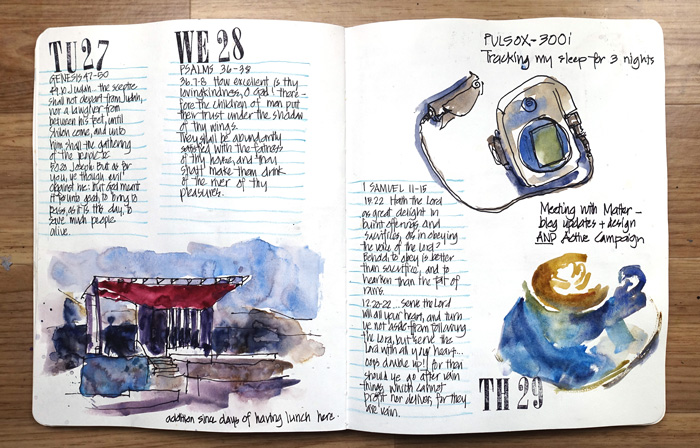 TU 27
GENESIS 47-50
49:10 Judah... the sceptre
shall not depart from Judah,
nor a lawgiver from
between his feet, until
Shiloh come, and unto
him shall the gathering
of the people be
50:20 Joseph: But as for
you, ye thought evil
against me: but God meant
it for unto good, to bring to
pass, as it is this day, to
save much people
alive.
WE 28
PSALMS 36-38
36.7-8 How excellent is thy
lovingkindness, O God! there-
fore the children of man put
their trust under the shadow
of thy wings.
They shall be abundantly
satisfied with the fatness
of thy house, and thou
shalt make them drink
of the river of thy
pleasures.
addition since days of having lunch here.
PULSOX-300i
Tracking my sleep for 3 nights
1 SAMUEL 11-15
15:22 Hath the Lord
as great delight in
burnt offerings and
sacrifices, as in obeying
the voice of the Lord?
Behold, to obey is better
than sacrifice, and to
hearken than the fat of
rams.
12:20-22 ... serve the Lord
with all your heart, and turn
ye not aside from following
the Lord, but serve the
Lord with all your heart...
for then
should ye go after vain
things, which cannot
profit nor deliver, for they
are vain.
Meeting with Matter -
blog updates + design
AND Active Campaign
TH 29